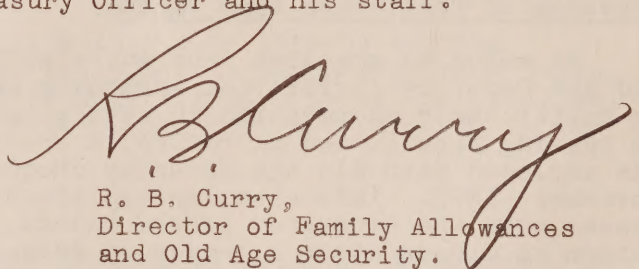 asury Officer and his staff.
RBCurry
R. B. Curry,
Director of Family Allowances
and Old Age Security.